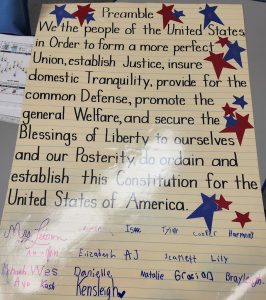 Preamble
We the people of the United States
in Order to form a more perfect
Union, establish Justice, insure
domestic Tranquility, provide for the
common Defense, promote the
general Welfare, and secure the
Blessings of Liberty to ourselves
and our Posterity do ordain and
establish this Constitution for the
United States of America.
Isaac Tyler Cooper Harmoni
Elizabeth AJ Scarlett Lily
Wes Danielle Natalie Grayson Brayleigh
Kash Kensleigh